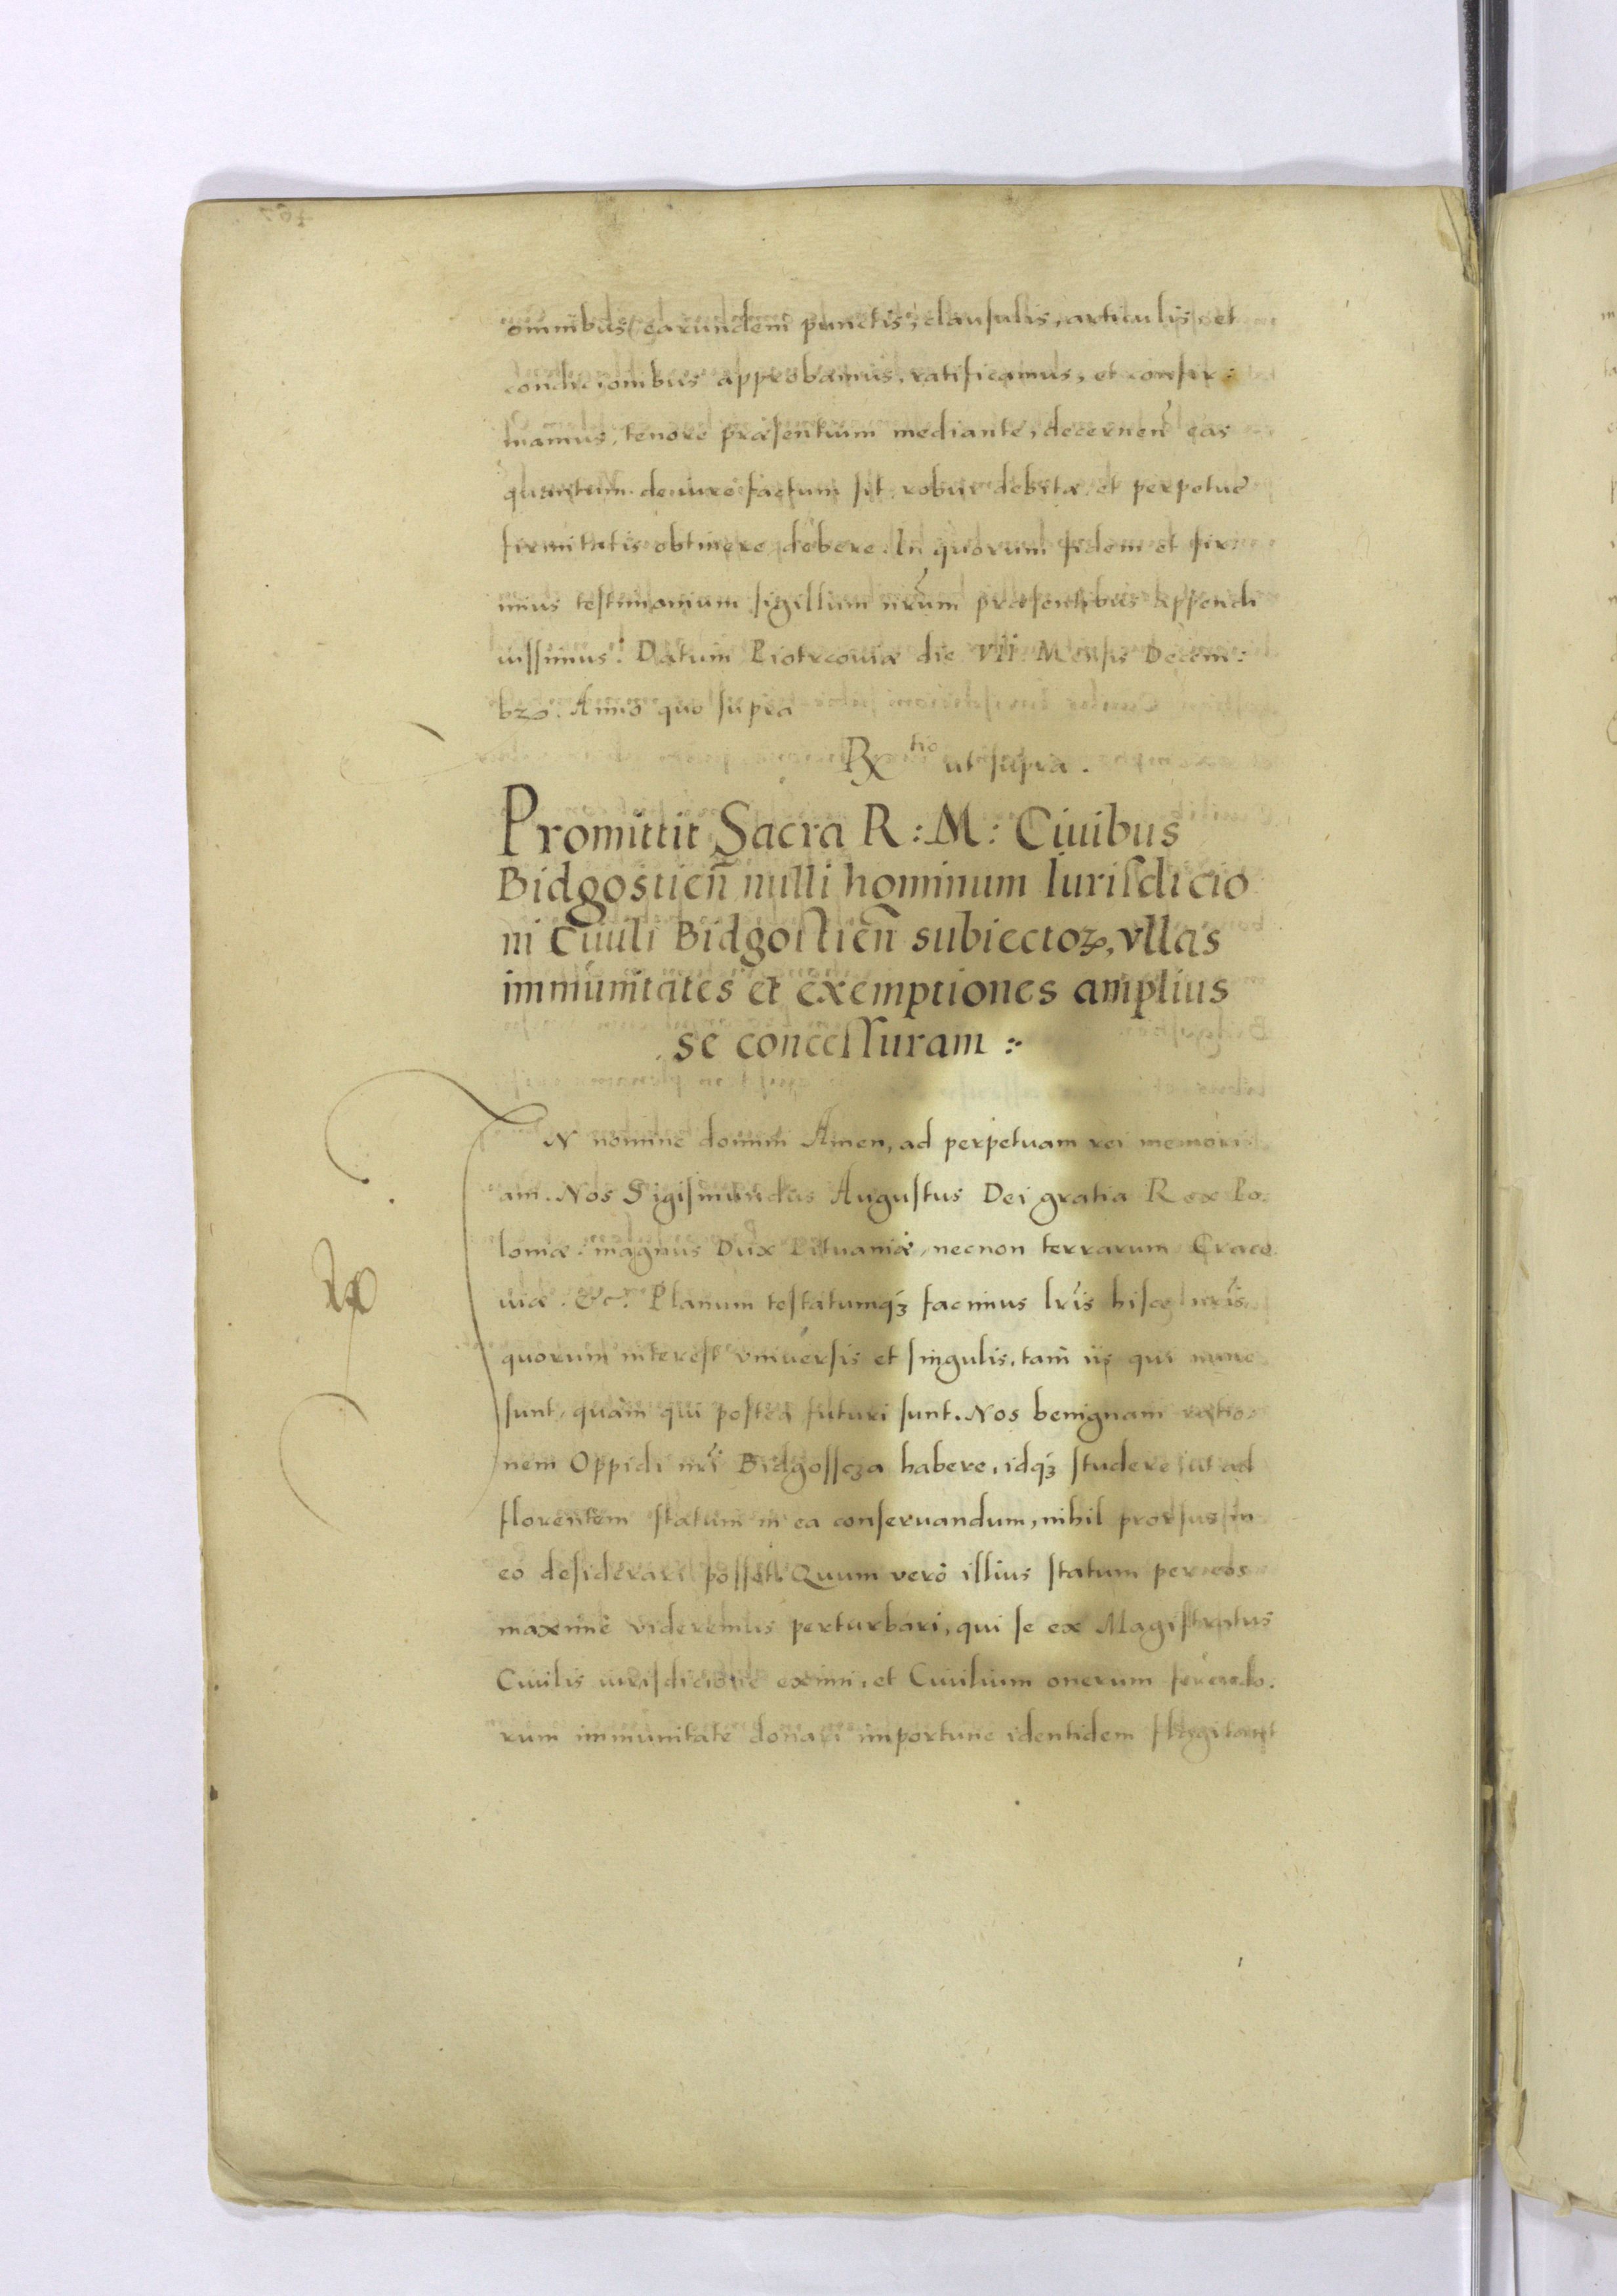 omnibus earundem punctis, clausulis, articulis, et
condicionibus approbamus, ratificamus, et confir:
mamus, tenore præsentium mediante, decerneñ eas
quantum de iure factum sit, robur debitæ et perpetuæ
firmitatis obtinere debere. In quorum fidem et fir
mius testimonium sigillum nr̃um præsentibus appendi
iussimus. Datum Piotrcouiæ die VII Mensis Decem:
bꝛꝫ. Anno quo supra
Rx tio ut supra.
Promittit Sacra R: M: Ciuibus
Bidgostieñ nulli hominum Iurisdicio
ni Ciuili Bidgostieñ subiectoꝝ, vllas
immunitates et exemptiones amplius
se concessuram :·
IN nomine domini Amen, ad perpetuam rei memori
am. Nos Sigismundus Augustus Dei gratia Rex Po.
loniæ. magnus Dux Lituaniæ, necnon terrarum Craco
uiæ. &c. Planum testatumqꝫ facimus lr̃is hisce nr̃is,
quorum interest vniuersis et singulis, tam iis qui nunc
sunt, quàm qui posteà futuri sunt. Nos benignam ratio
nem Oppidi nr̃i Bidgoscza habere, idqꝫ studere ut ad
florentem statum in ea conseruandum, nihil prorsus in
eo desiderari posset. Quum verò illius statum per eos
maximè videremus perturbari, qui se ex Magistratus
Ciuilis iurisdicione eximi, et Ciuilium onerum ferendo.
rum immunitate donari importunè identidem flagitant